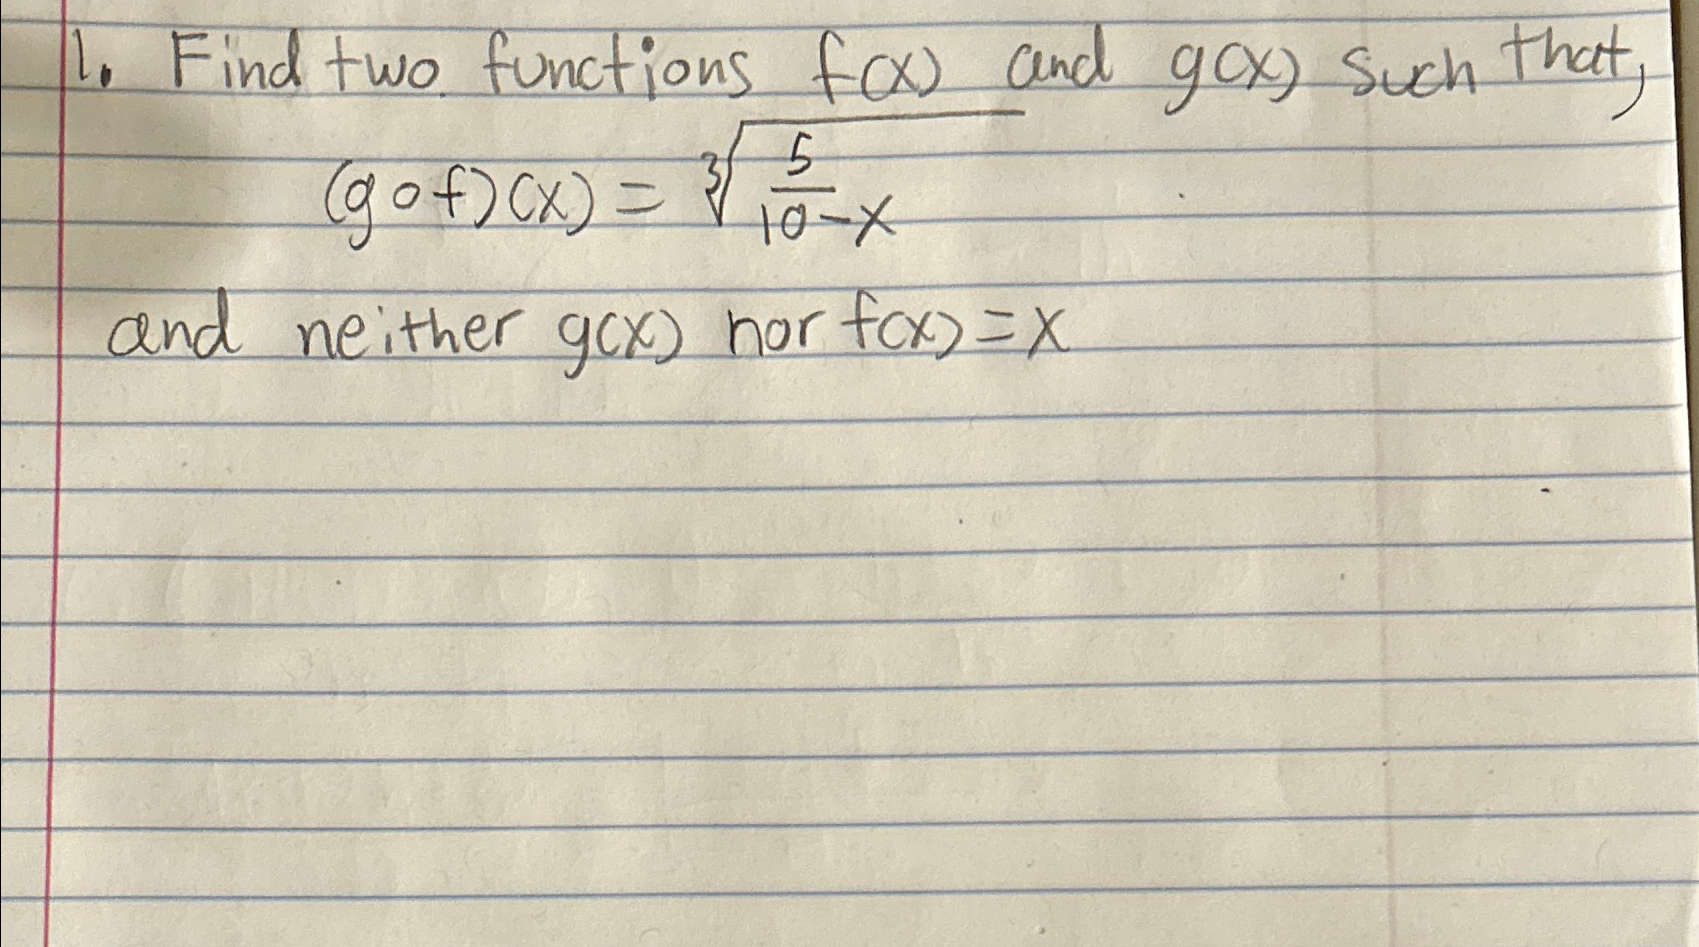 1. Find two functions f(x) and g(x) such that,
(g∘f)(x) = ∛(5/(10-x))
and neither g(x) nor f(x)=x